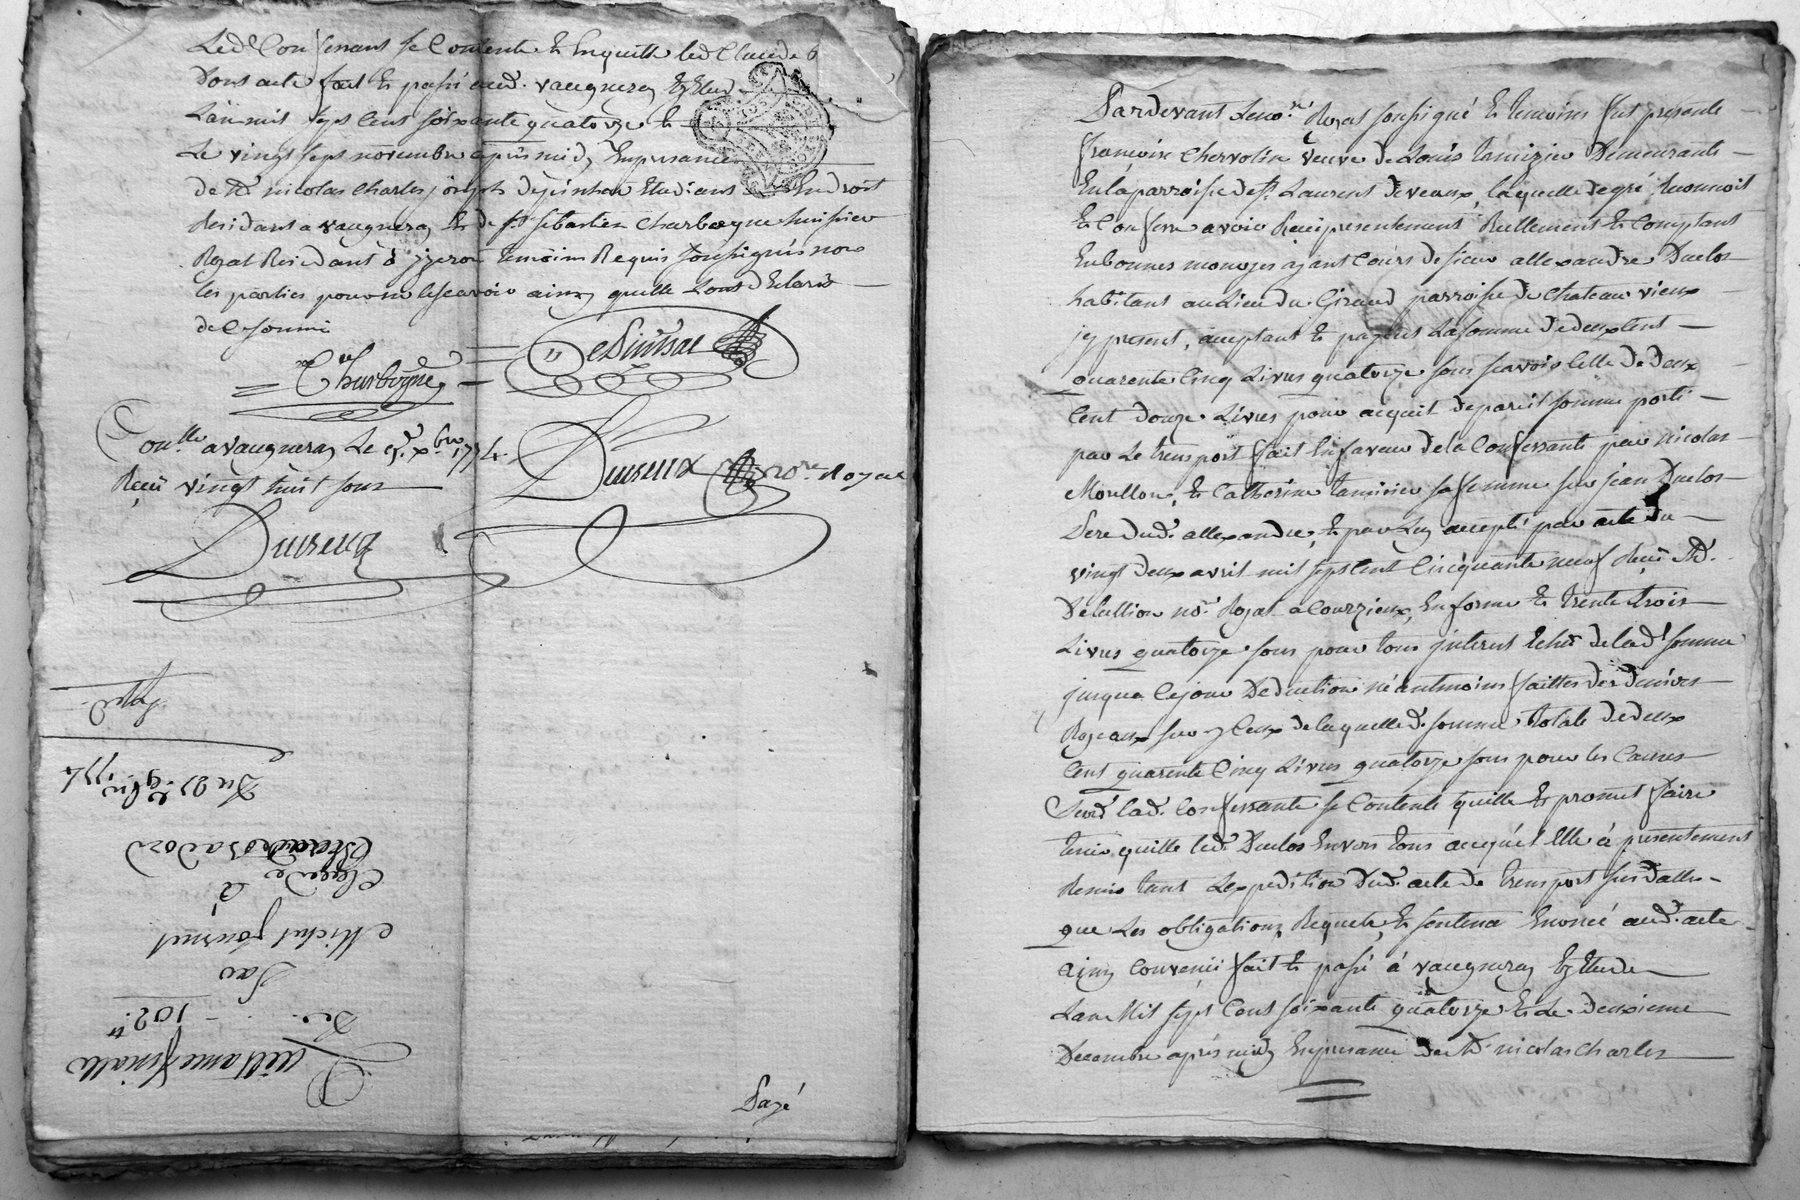 Led. Confessant se Contente et Enquitte led Claude
Dont acte fait et passé aud. vaugneray Etude
L'an mil sept Cent soixante quatorze et
Le vingt sept novembre après midy En presance
de Me nicolas Charles joseph depinhac Etudiant En droit
Residant a vaugneray et de sr sebastien Charbogne huissier
Royal Residant à yzeron temoins Requis soussignés non
les parties pour ne le scavoir ainsy quelle Lont Declaré
de Ce sommé
Charbogne
Depinhac
Conlle a vaugneray Le 5e Xbre 1774
Reçu vingt huit sous
Dureux nore Royal
Dureux
Pardevant Le nore Royal soussigné et temoins fut presente
francoise Chervolin veuve de Louis tamizier Demeurante
En la parroisse de st Laurent de veaux, laquelle de gré Reconnoit
et Confesse avoir Reçu presentement Reellement et Comptant
En bonnes monoyes ayant Cours de sieur allexandre Duclos
habitant au Lieu du Giraud parroisse de chateau vieux
jcy present, acceptant et payant La somme de deux Cent
quarente Cinq Livres quatorze sous scavoir Celle de deux
Cent douze Livres pour acquit de pareil somme porté
par Le transport fait En faveur de la Confessante par nicolas
Moullon, et Catherine tamizier sa femme sur jean Duclos
Pere dud. allexandre, et par Luy accepté par acte du
vingt deux avril mil sept Cent Cincquante neuf Reçu Me
Delullion nore Royal a Courzieux, En forme et trente trois
Livres quatorze sous pour tous jnterest Echus de lad. somme
jusqua Ce jour Deduction néantmoins faitte des deniers
Royeaux sur yCeux de laquelle d. somme totale de deux
Cent quarente Cinq Livres quatorze sous pour les Causes
Susd. lad. Confessante se Contente quitte et promet faire
tenir quitte led. Duclos Envers tous acquel Elle à presentement
Remis tant Lexpedition dud. acte de transport susdatté
que Les obligations, Requete, et sentence Enoncé aud. acte
Ainsy Convenu fait et passé à vaugneray Etude
Lan Mil sept Cent soixante quatorze et Le deuxieme
Decembre après midy En presance de Me nicolas Charles
Payé
Quittance finalle
De 102 tt
Par
Michel journet
à
Claude
Du 27 9bre 1774
Exp.d